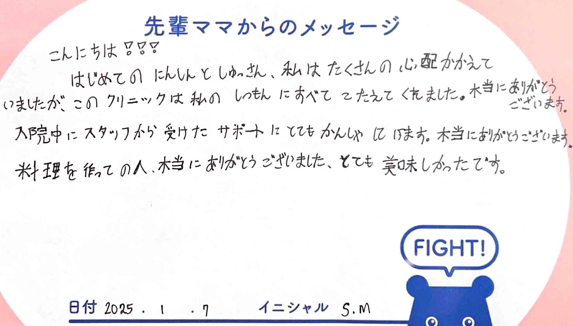 先輩ママからのメッセージ
こんにちは!!!
はじめての にんしんと しゅっさん、私は たくさんの 心配 かかえて
いましたが、この クリニックは 私の しつもん に すべて こたえて くれました。本当に ありがとう
ございます。
入院中に スタッフから 受けた サポートに とても かんしゃ しています。本当に ありがとうございます。
料理を 作っての人、本当に ありがとう ございました、とても 美味しかったです。
FIGHT!
日付 2025 . 1 . 7 イニシャル S.M